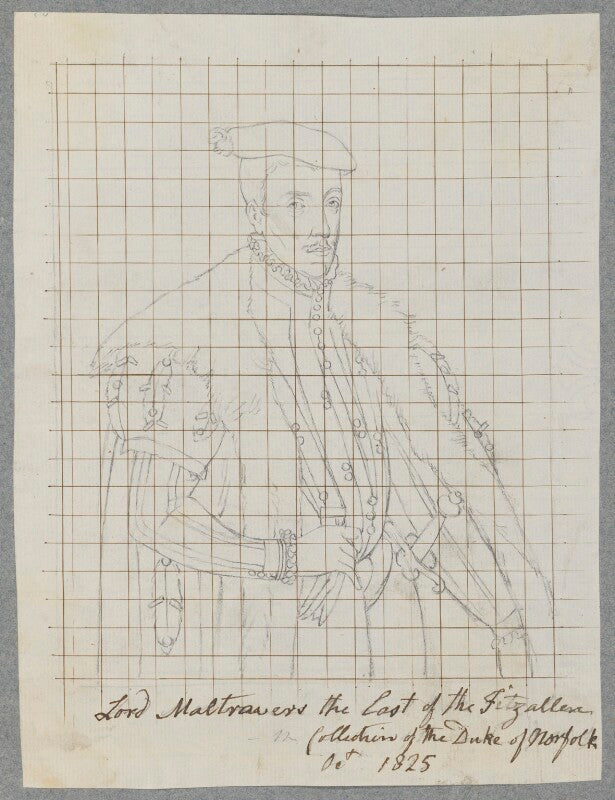 Lord Maltravers the Last of the Fitzallen
Collection of the Duke of Norfolk
Oct 1825